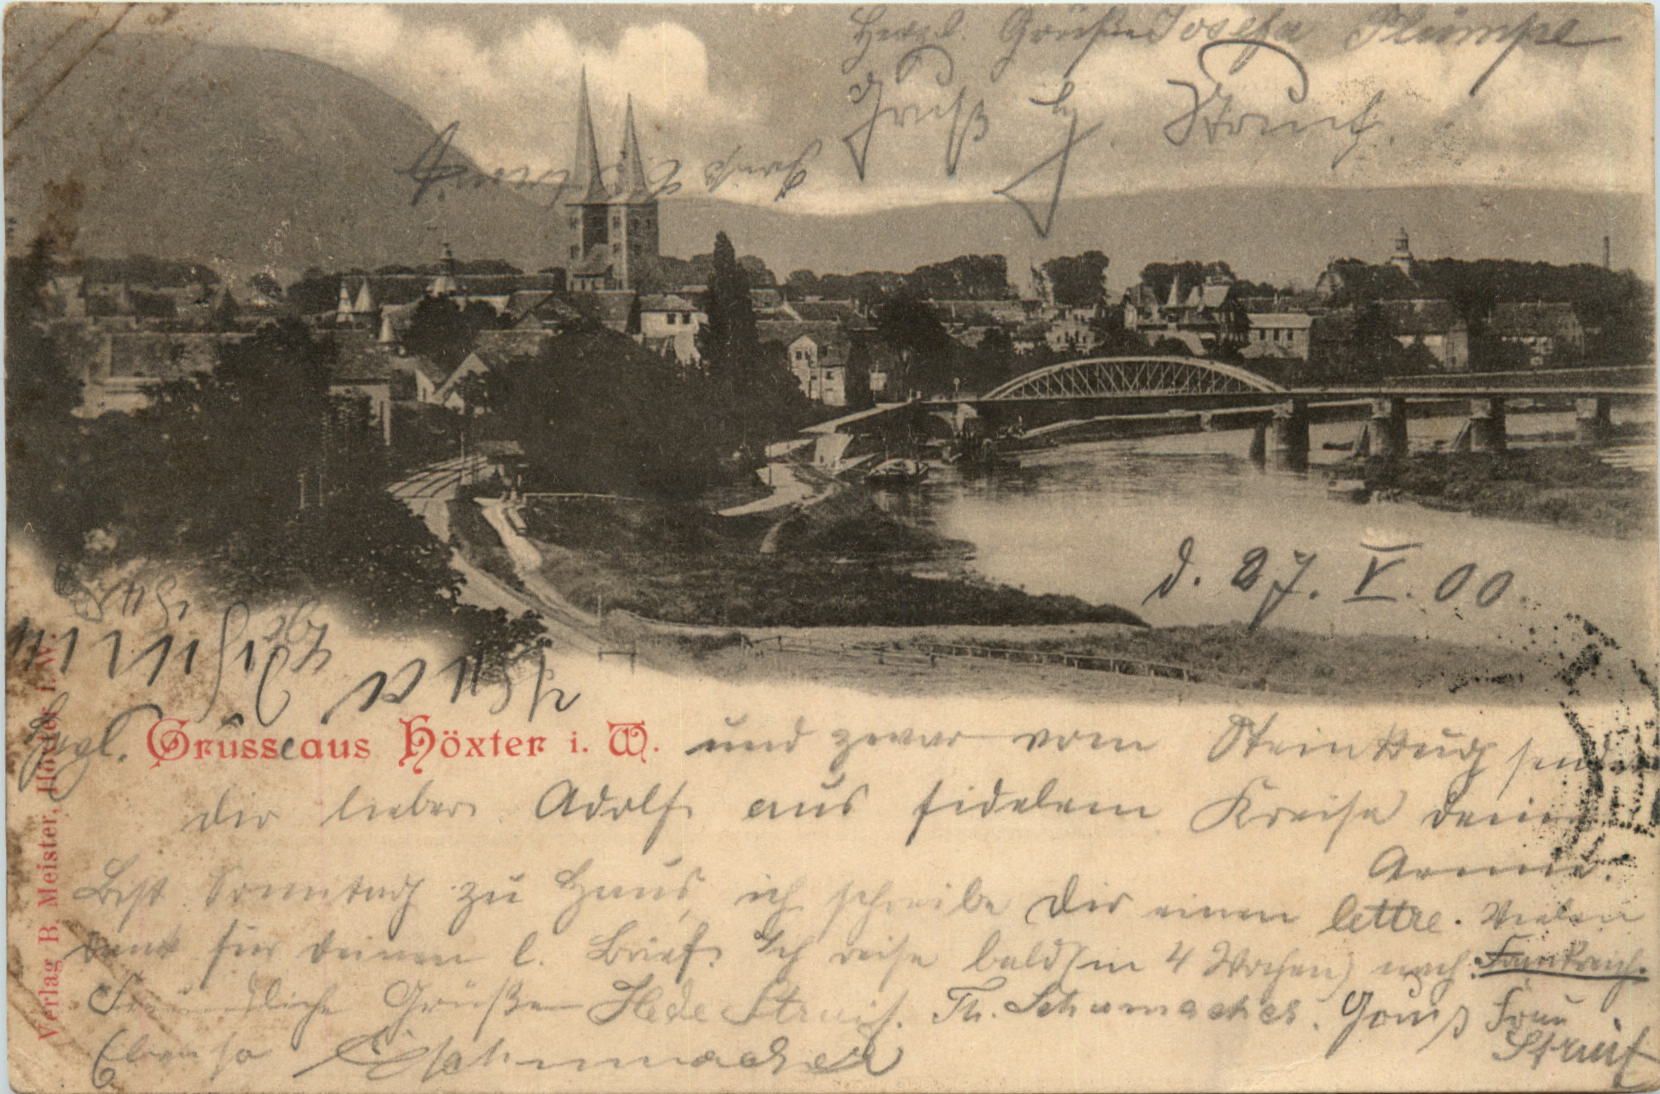 Herzl. Grüße Josefa Plümpe
Gruß
d. 27. V. 00.
Hrzl. Grüsse aus Höxter i. W. und zwar vom Steinkrug sende
dir lieber Adolf aus fidelem Kreise deine
Bist Sonntag zu Haus, ich schreibe dir einen lettre. Vielen
Dank für deinen l. Brief. Ich reise bald (in 4 Wochen) nach Frankreich.
Freundliche Grüße Hede Struif. Th. Schumacher. Gruß Frau
Struif
Ebenso Schumacher
Verlag B. Meister, Höxter i. W.